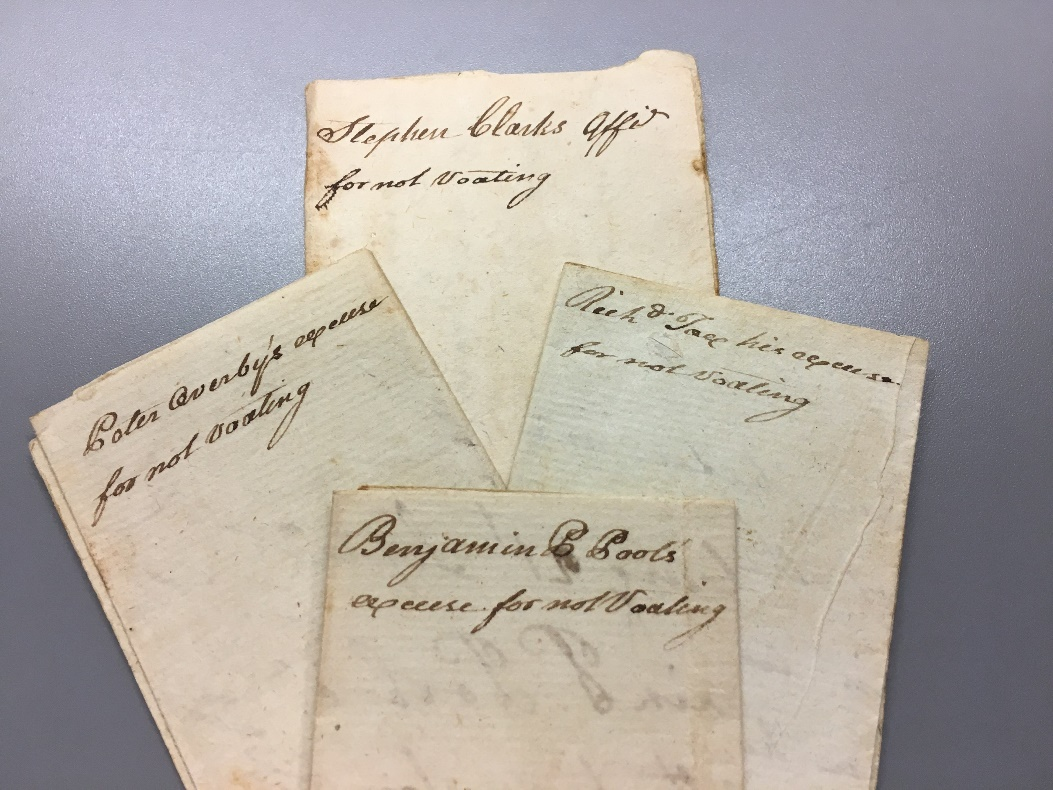 Stephen Clarks Affid
for not Voating
Peter Overby's excuse
for not Voating
Richd. his excuse
for not Voating
Benjamin P Pools
excuse for not Voating